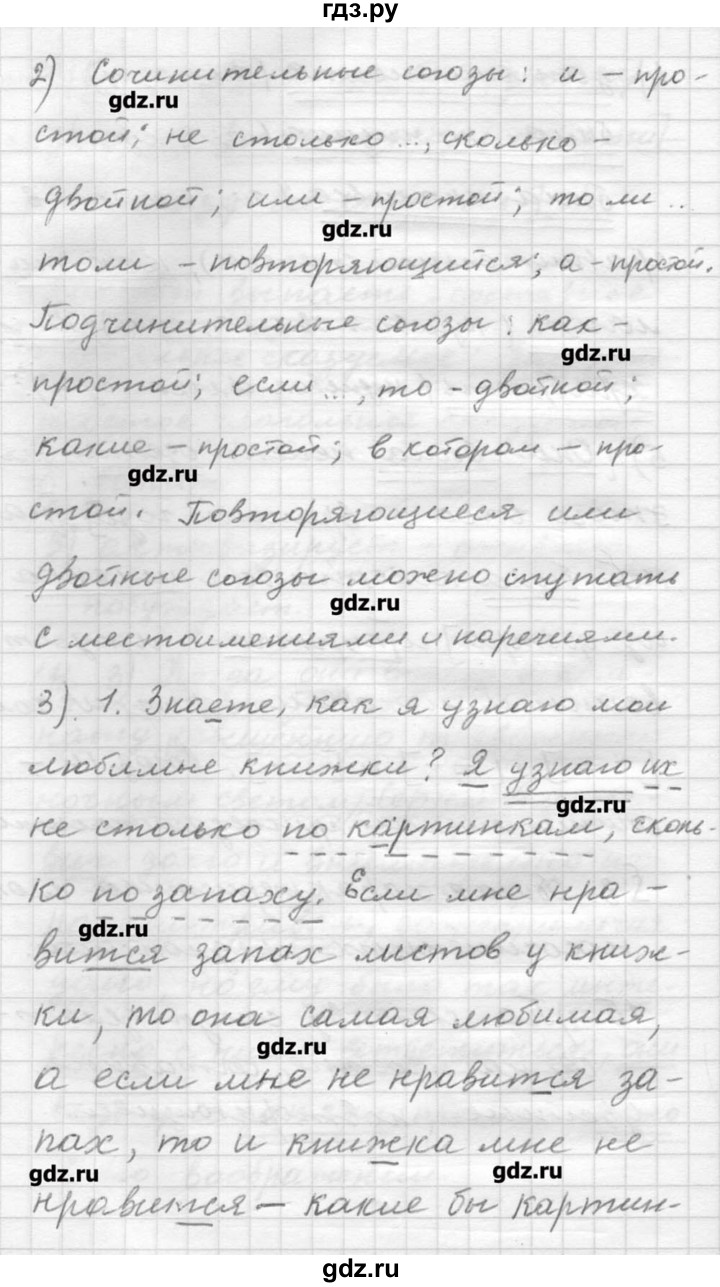 гдз.ру
2) Сочинительные союзы: и – про-
gdz.ru
стой; не столько ..., сколько –
двойной; или – простой; то ли ..
gdz.ru
то ли – повторяющийся; а – простой.
Подчинительные союзы: как –
gdz.ru
простой; если ..., то – двойной;
какие – простой; в котором – про-
gdz.ru
стой. Повторяющиеся или
двойные союзы можно спутать
gdz.ru
с местоимениями и наречиями.
3). 1. Знаете, как я узнаю мои
любимые книжки? Я узнаю их
gdz.ru
не столько по картинкам, сколь-
ко по запаху. Если мне нра-
gdz.ru
вится запах листов у книж-
ки, то она самая любимая,
gdz.ru
а если мне не нравится за-
пах, то и книжка мне не
gdz.ru gdz.ru
нравится – какие бы картин-
gdz.ru